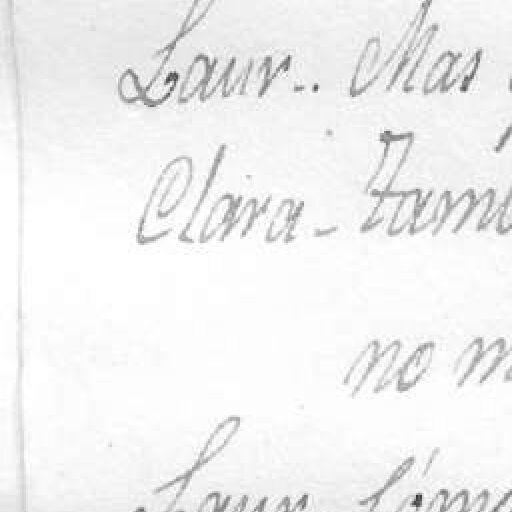 Laur.. Mas
Clara- Tamb
no m
Laur. Cómo